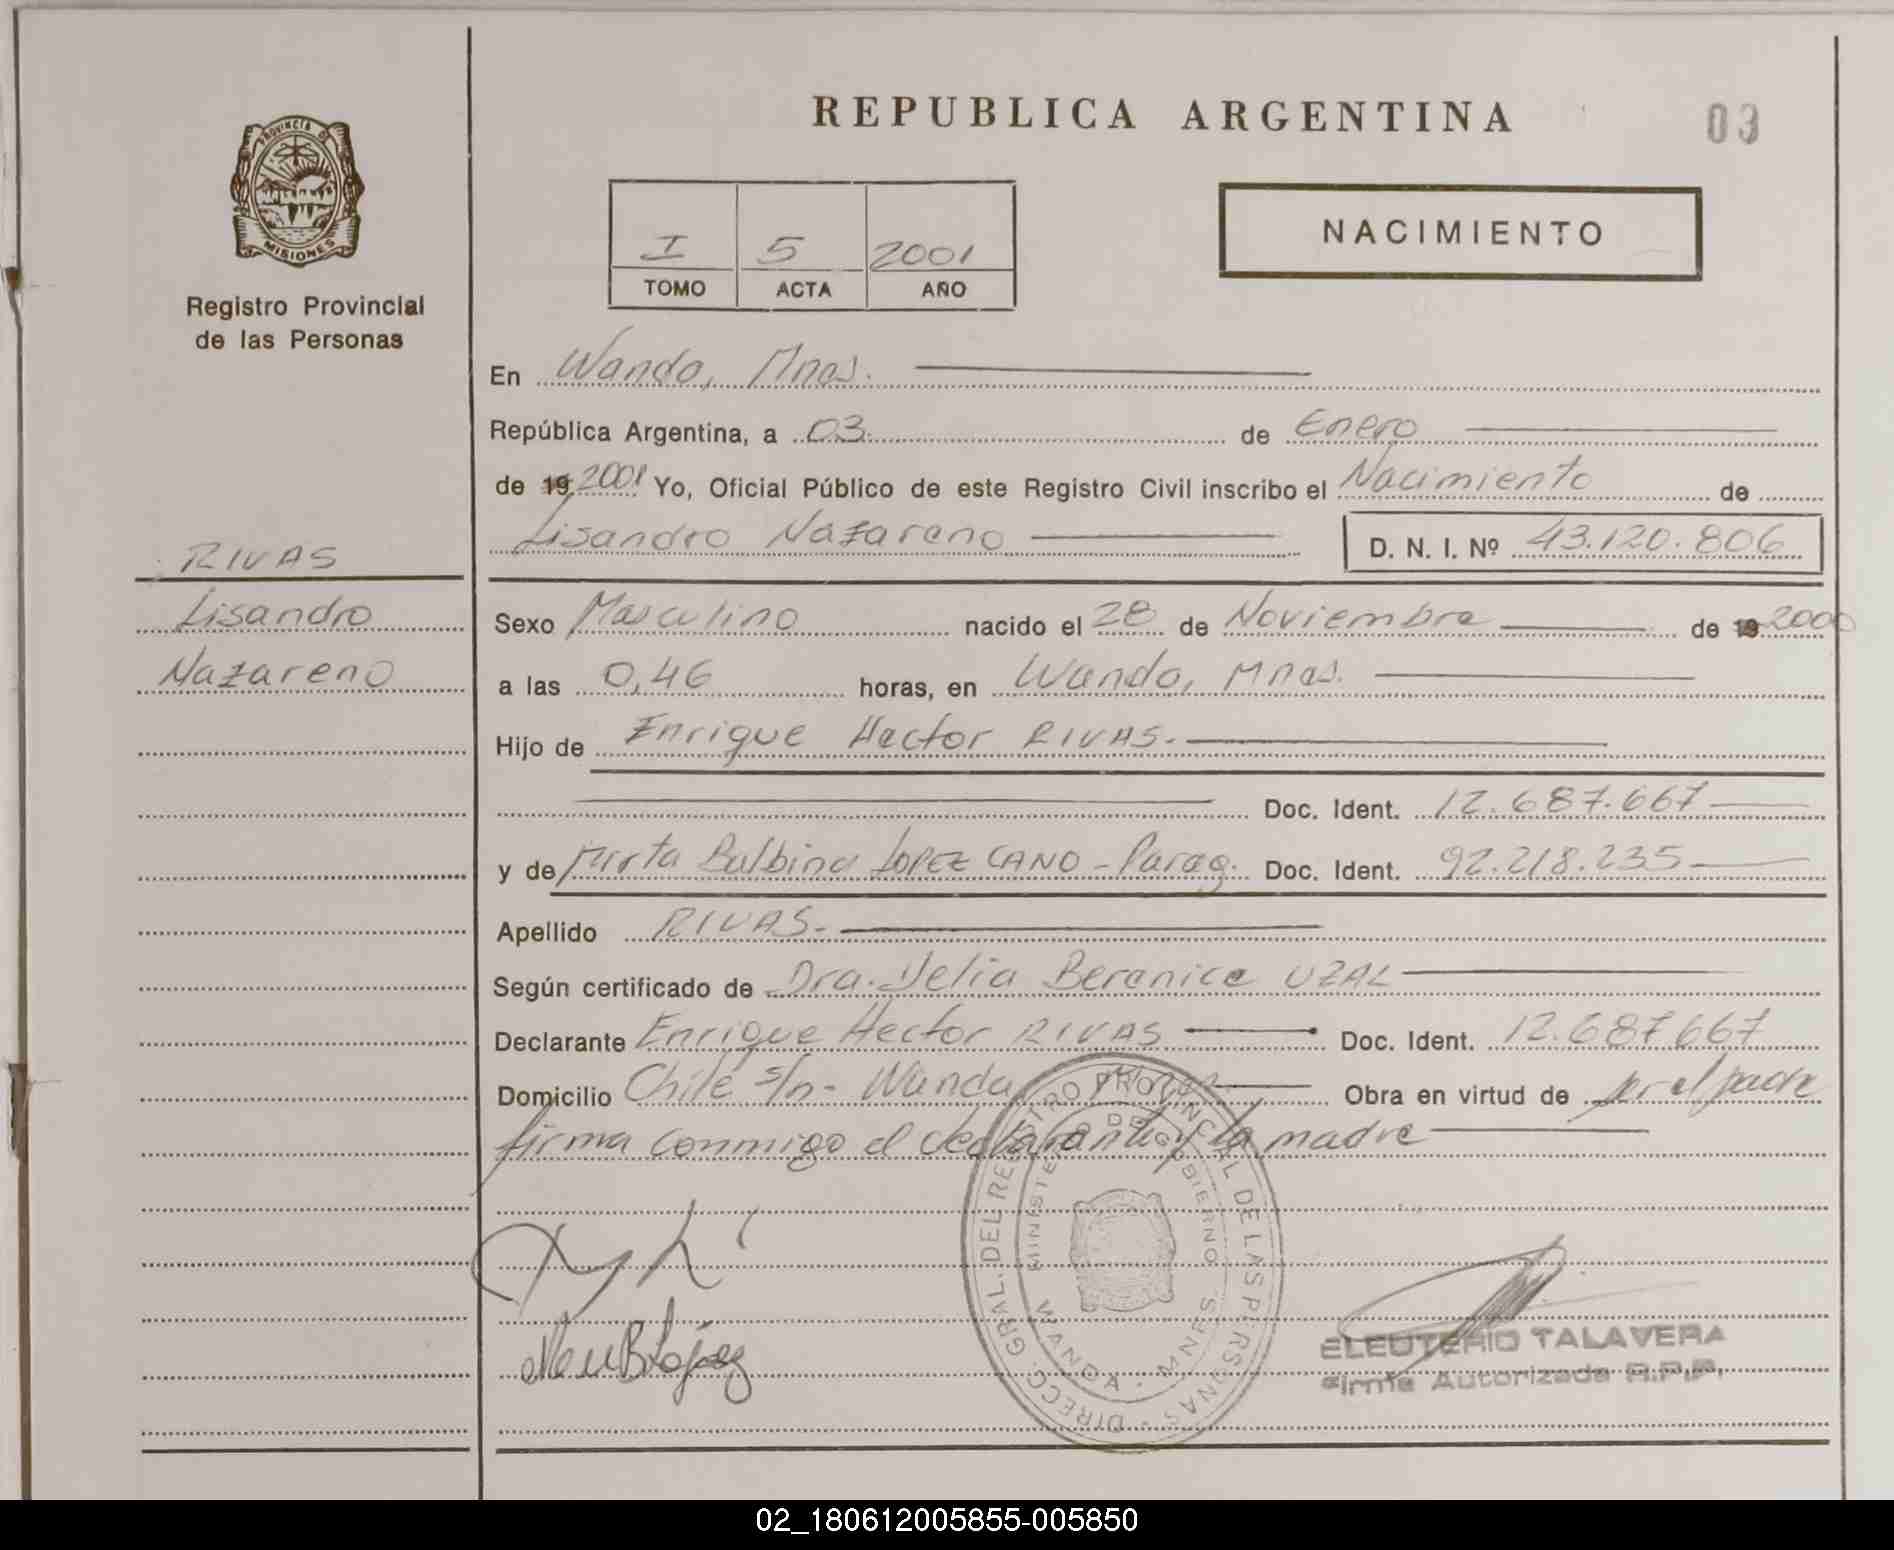 REPUBLICA ARGENTINA
03
PROVINCIA DE
MISIONES
Registro Provincial
de las Personas
I 5 2001
TOMO ACTA AÑO
NACIMIENTO
En Wanda, Mnes.
República Argentina, a 03 de Enero
de 19 2001 Yo, Oficial Público de este Registro Civil inscribo el Nacimiento de
Lisandro Nazareno D. N. I. Nº 43.120.806
RIVAS
Lisandro
Nazareno
Sexo Masculino nacido el 28 de Noviembre de 19 2000
a las 0,46 horas, en Wanda, Mnes.
Hijo de Enrique Hector RIVAS.
Doc. Ident. 12.687.667
y de Mirta Balbina LOPEZ CANO - Parag. Doc. Ident. 92.218.235
Apellido RIVAS.
Según certificado de Dra. Delia Berenice UZAL
Declarante Enrique Hector RIVAS Doc. Ident. 12.687667
Domicilio Chile s/n - Wanda Obra en virtud de ser el padre
firma conmigo el declarante y la madre
DIRECC. GRAL. DEL REGISTRO PROVINCIAL DE LAS PERSONAS
MINISTERIO DE GOBIERNO
WANDA - MNES.
ELEUTERIO TALAVERA
Firma Autorizada R.P.P.
02_180612005855-005850